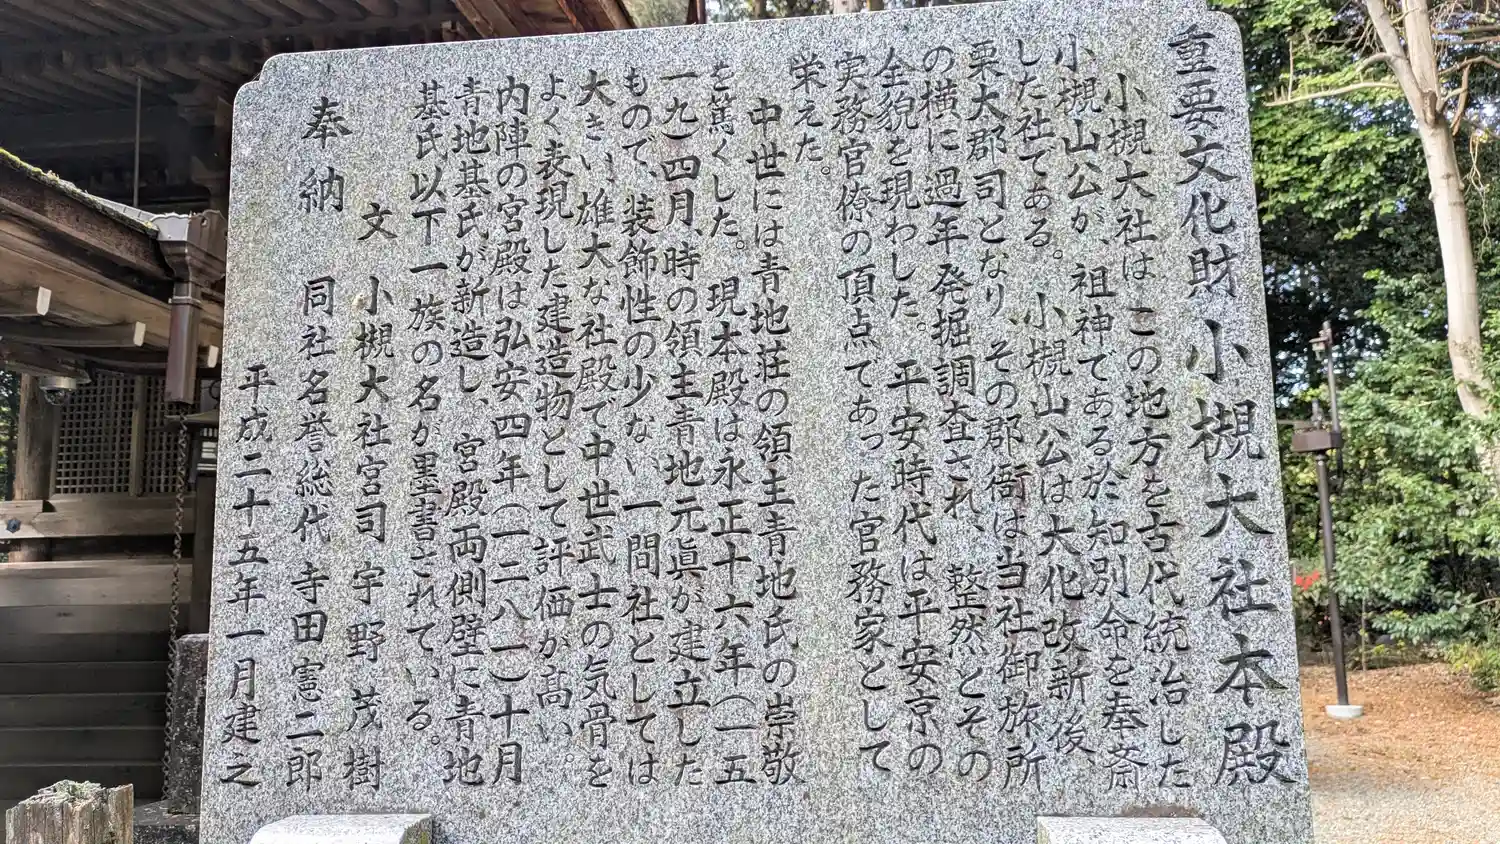 重要文化財 小槻大社本殿
小槻大社は この地方を古代統治した
小槻山公が、祖神である於知別命を奉斎
した社である。小槻山公は大化改新後、
栗太郡司となり、その郡衙は当社御旅所
の横に過年発掘調査され、整然とその
全貌を現わした。平安時代は平安京の
実務官僚の頂点であった官務家として
栄えた。
中世には青地荘の領主青地氏の崇敬
を篤くした。現本殿は永正十六年(一五
一九)四月、時の領主青地元眞が建立した
もので、装飾性の少ない一間社としては
大きい、雄大な社殿で中世武士の気骨を
よく表現した建造物として評価が高い。
内陣の宮殿は弘安四年(一二八一)十月
青地基氏が新造し、宮殿両側壁に青地
基氏以下一族の名が墨書されている。
文 小槻大社宮司 宇野茂樹
奉納 同社名誉総代 寺田憲二郎
平成二十五年一月建之